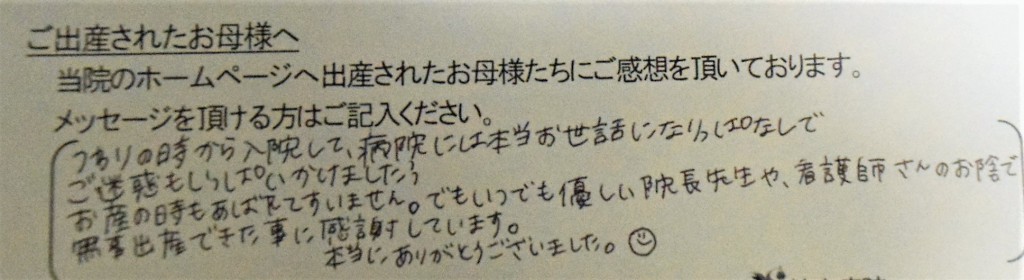 ご出産されたお母様へ
当院のホームページへ出産されたお母様たちにご感想を頂いております。
メッセージを頂ける方はご記入ください。
つわりの時から入院して、病院には本当お世話になりっぱなしで
ご迷惑もいっぱいかけました
お産の時もあばれてすいません。でもいつでも優しい院長先生や、看護師さんのお陰で
無事出産できた事に感謝しています。
本当にありがとうございました。